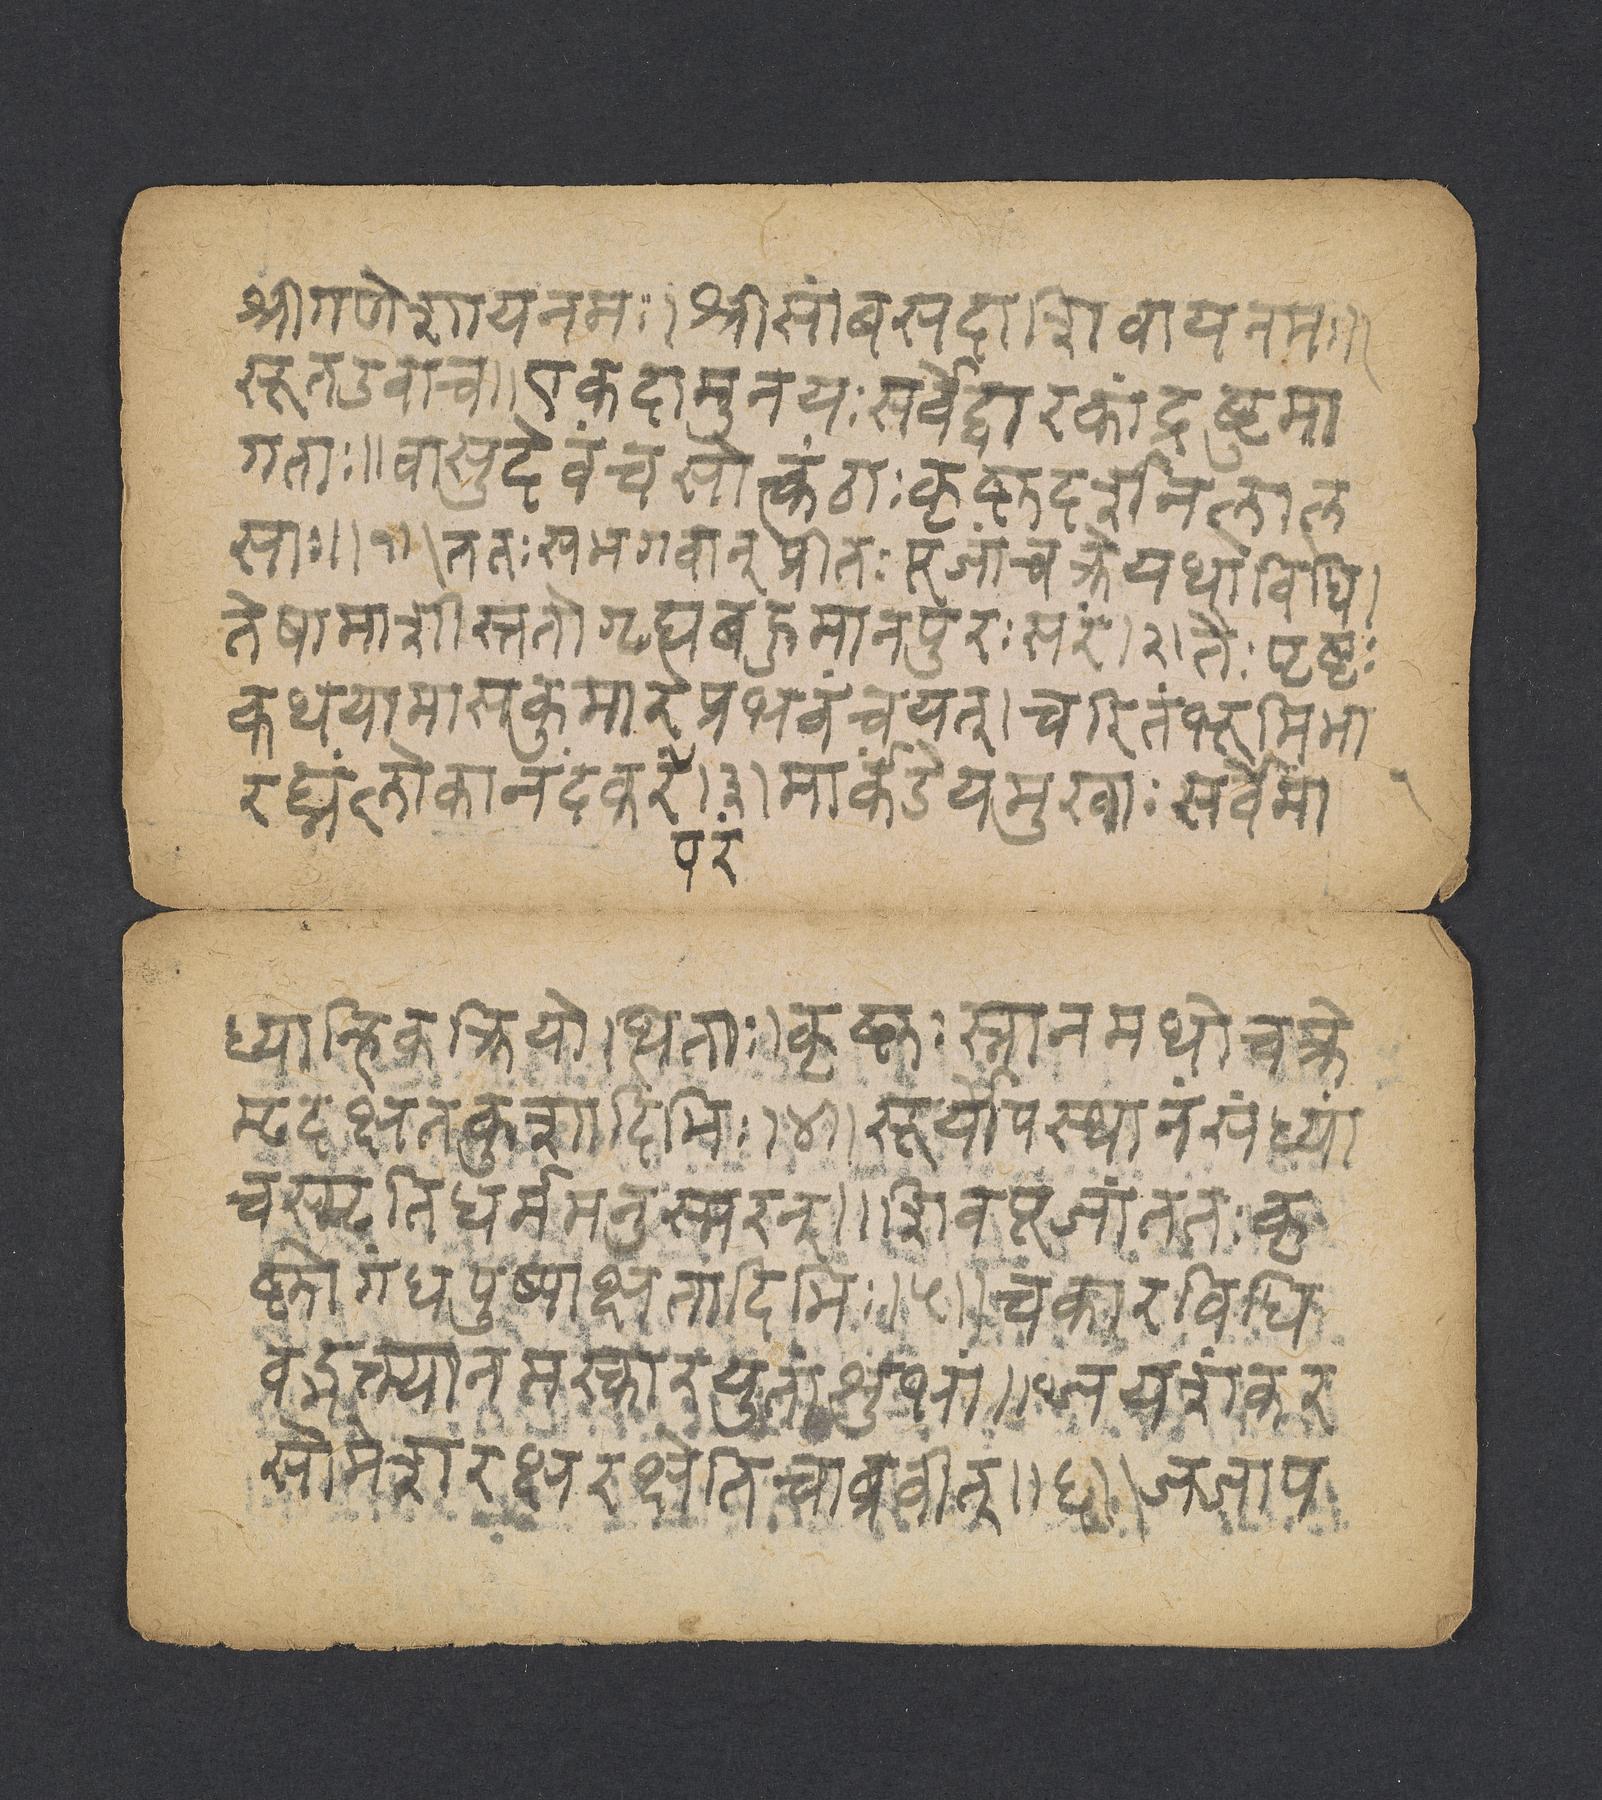 श्रीगणेशायनमः।श्रीसांबसदाशिवायनमः॥
सूतउवाच॥एकदामुनयःसर्वेद्वारकांद्रष्टुमा
गताः॥वासुदेवंचसोत्कंठाःकृष्णदर्शनलाल
साः॥१॥ततःसभगवान्प्रीतःपूजांचक्रेयथाविधि।
तेषामाशीस्ततोगृह्यबहुमानपुरःसरं।२।तैःपृष्टः
कथयामासकुमारप्रभवंचयत्।चरितंभूमिभा
रघ्नंलोकानंदकरं।३।मार्कंडेयमुखाःसर्वेमा
परं
ध्यान्हिकक्रियोत्थिताः।कृष्णःस्नानमथोचक्रे
मृदक्षतकुशादिभिः।४।सूर्योपस्थानंसंध्यां
चस्मृतिधर्ममनुस्मरन्॥शिवपूजांततःकृ
ष्णोगंधपुष्पाक्षतादिभिः।५॥चकारविधि
वद्भक्त्यानमस्कारयुतांशुभां॥जयशंकर
सोमेशरक्षरक्षेतिचाब्रवीत्॥६॥जजाप